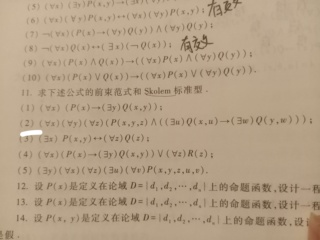 (6) (∃y)P(x,y)→(∀x)(∃y)P(x,y); 有效
(7) ¬(∀x)(P(x)→(∃y)Q(y)∧(∀y)Q(y));
(8) ¬(∀x)Q(x)↔(∃x)(¬Q(x)); 有效
(9) (∀x)(P(x)∧Q(x))→((∀x)P(x)∧(∀y)Q(y));
(10) (∀x)(P(x)∨Q(x))→((∀x)P(x)∨(∀y)Q(y)).
11. 求下述公式的前束范式和 Skolem 标准型.
(1) (∀x)(P(x)→(∃y)Q(x,y));
(2) (∀x)(∀y)(∀z)(P(x,y,z)∧((∃u)Q(x,u)→(∃w)Q(y,w)));
(3) (∃x) P(x,y)↔(∀z)Q(z);
(4) (∀x)(P(x)→(∃y)Q(x,y))∨(∀z)R(z);
(5) (∃y)(∀x)(∀z)(∃u)(∀v)P(x,y,z,u,v).
12. 设 P(x)是定义在论域 D={d₁,d₂,⋯,dₙ}上的命题函数,设计一程
13. 设 P(x)是定义在论域 D={d₁,d₂,⋯,dₙ}上的命题函数,设计一
14. 设 P(x,y)是定义在论域 D={d₁,d₂,⋯,dₙ}上的命题函数,设
是假.